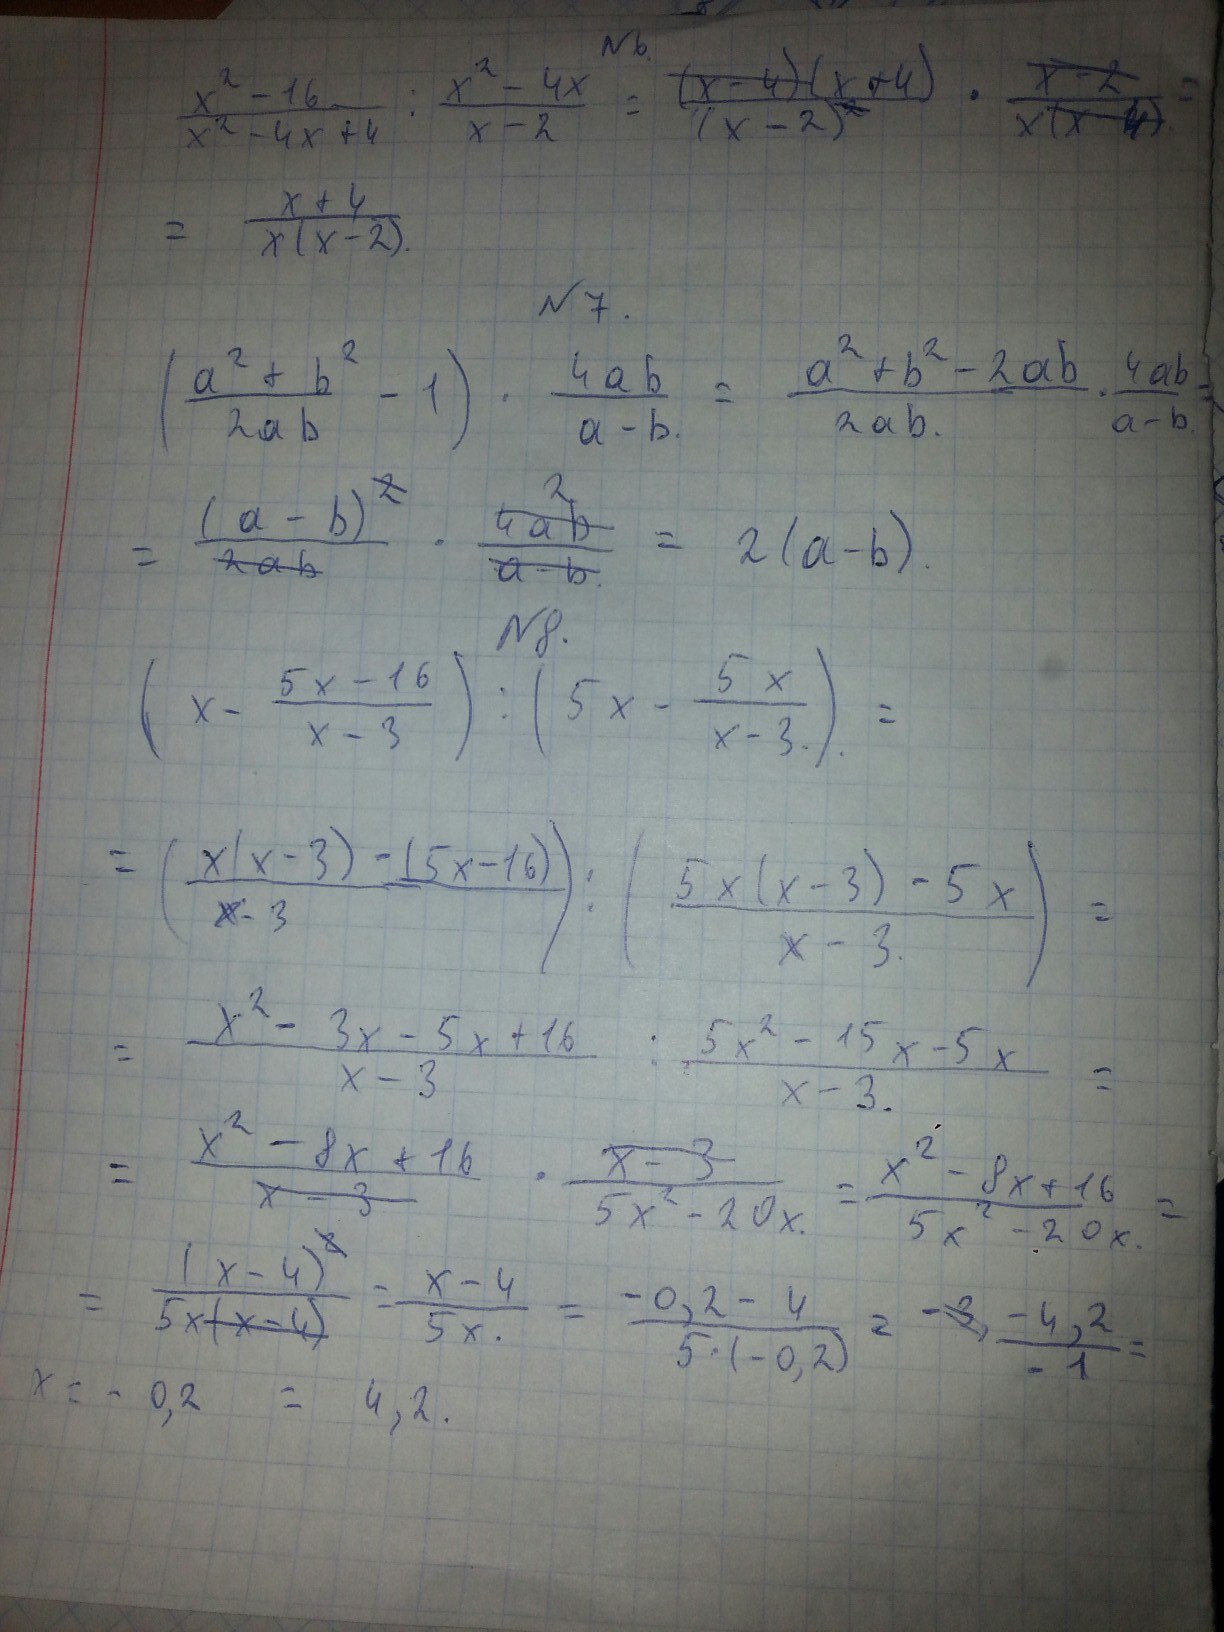 N6.
(x² - 16)/(x² - 4x + 4) : (x² - 4x)/(x - 2) = ((x - 4)(x + 4))/((x - 2)²) · (x - 2)/(x(x - 4)) =
= (x + 4)/(x(x - 2)).
N7.
((a² + b²)/(2ab) - 1) · (4ab)/(a - b.) = (a² + b² - 2ab)/(2ab.) · (4ab)/(a - b.) =
= ((a - b)²)/(2ab) · (4ab)/(a - b.) 2 = 2(a - b).
N8.
(x - (5x - 16)/(x - 3)) : (5x - (5x)/(x - 3.)). =
= ((x(x - 3) - (5x - 16))/(x - 3)) : ((5x(x - 3) - 5x)/(x - 3.)) =
= (x² - 3x - 5x + 16)/(x - 3) : (5x² - 15x - 5x)/(x - 3.) =
= (x² - 8x + 16)/(x - 3) · (x - 3)/(5x² - 20x.) = (x² - 8x + 16)/(5x² - 20x.) =
= ((x - 4)²)/(5x(x - 4)) = (x - 4)/(5x.) = (-0,2 - 4)/(5·(-0,2)) = (-4,2)/(-1) =
x = - 0,2 = 4,2.